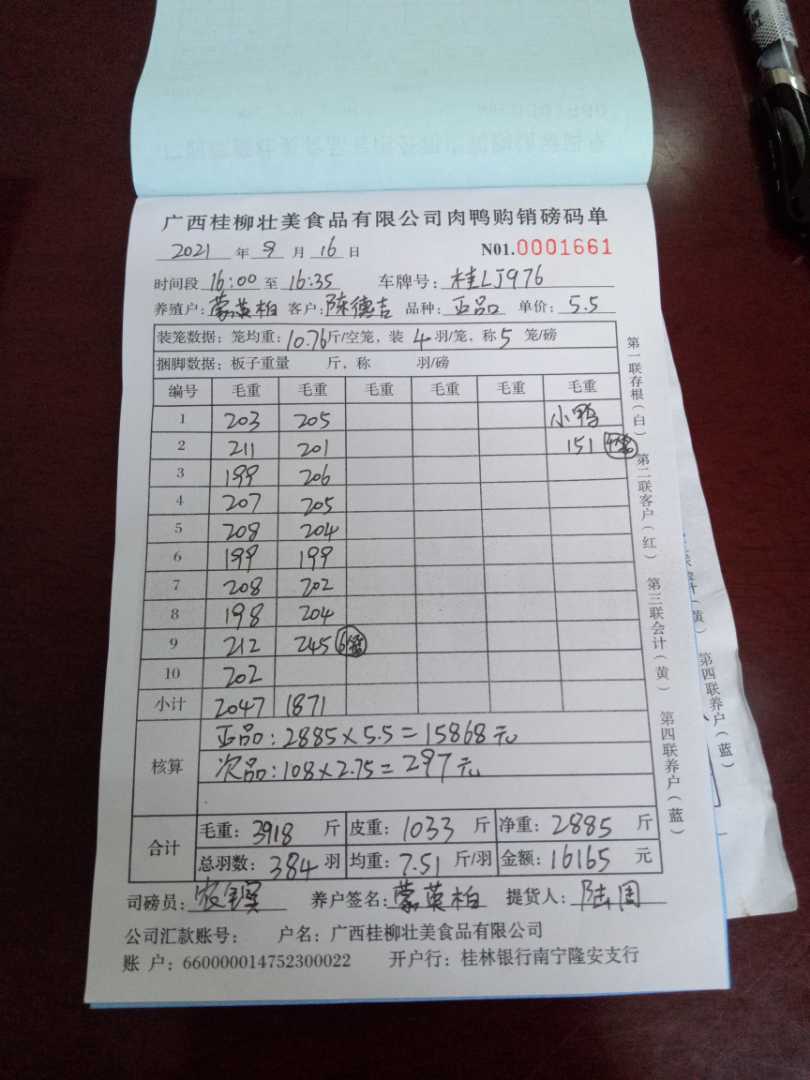 广西桂柳壮美食品有限公司肉鸭购销磅码单
2021 年 9 月 16 日 N01.0001661
时间段 16:00 至 16:35 车牌号: 桂LJ976
养殖户: 蒙英柏 客户: 陈德吉 品种: 正品 单价: 5.5
装笼数据: 笼均重: 10.76 斤/空笼, 装 4 羽/笼, 称 5 笼/磅
捆脚数据: 板子重量 斤, 称 羽/磅
编号 毛重 毛重 毛重 毛重 毛重 毛重
1 203 205 小鸭
2 211 201 151
3 199 206
4 207 205
5 208 204
6 199 199
7 208 202
8 198 204
9 212 245 6笼
10 202
小计 2047 1871
核算
正品: 2885×5.5=15868元
次品: 108×2.75=297元
合计
毛重: 3918 斤 皮重: 1033 斤 净重: 2885 斤
总羽数: 384 羽 均重: 7.51 斤/羽 金额: 16165 元
司磅员: 养户签名: 蒙英柏 提货人: 陆周
公司汇款账号: 户名: 广西桂柳壮美食品有限公司
账 户: 660000014752300022 开户行: 桂林银行南宁隆安支行
第一联存根(白) 第二联客户(红) 第三联会计(黄) 第四联养户(蓝)
计(黄) 第四联养户(蓝)